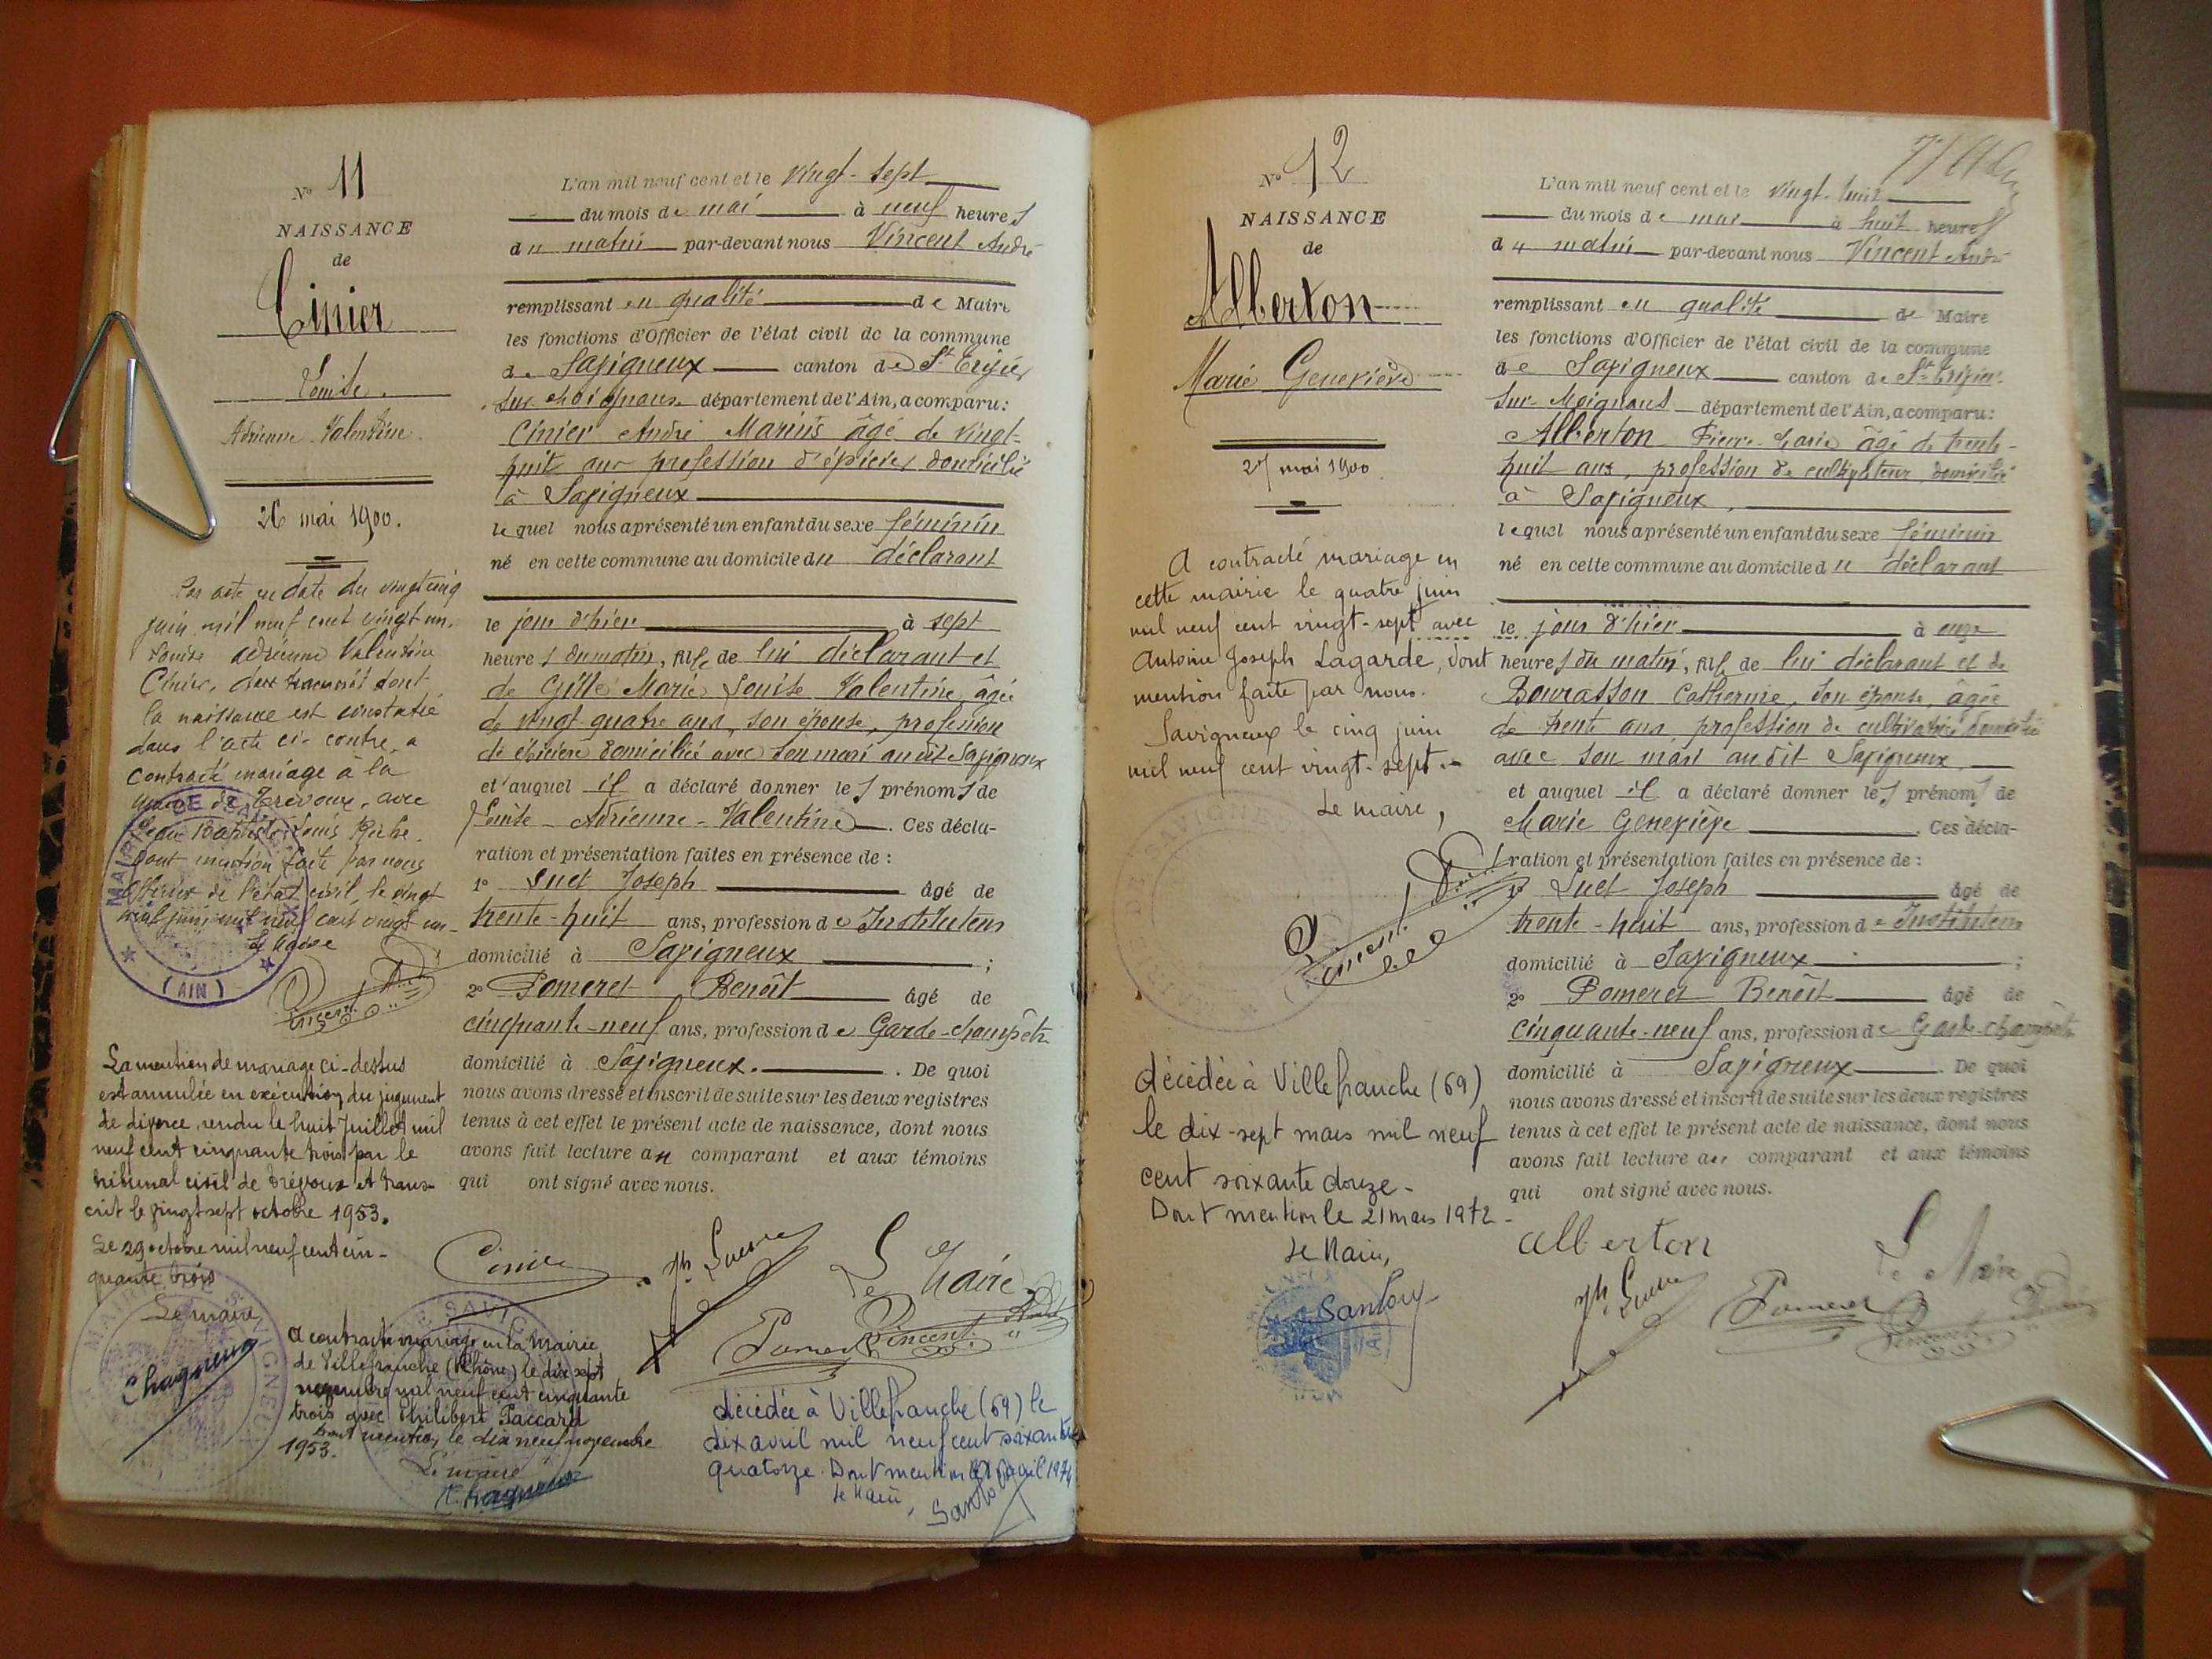 N° 11
NAISSANCE
de
Cinier
Louise
Adrienne Valentine
26 mai 1900.
Par acte en date du vingt cinq
juin mil neuf cent vingt un,
Louise Adrienne Valentine
Cinier, dont
la naissance est constatée
dans l'acte ci-contre, a
contracté mariage à la
mairie de Trévoux, avec
Jean Baptiste Louis
dont mention faite par nous
Officier de l'état civil, le vingt
huit juin mil neuf cent vingt un
Le Maire
Vincent
MAIRIE DE
(AIN)
La mention de mariage ci-dessus
est annulée en exécution du jugement
de divorce, rendu le huit Juillet mil
neuf cent cinquante trois par le
tribunal civil de Trévoux et trans-
crit le vingt sept octobre 1953.
Le 29 octobre mil neuf cent cin-
quante trois
Le maire,
Chagneux
A contracté mariage en la Mairie
de Villefranche (Rhône) le dix sept
novembre mil neuf cent cinquante
trois avec Philibert Paccard
Dont mention le dix neuf novembre
1953.
Le maire
Chagneux
L'an mil neuf cent et le vingt-sept
du mois de mai à neuf heures
du matin par-devant nous Vincent André
remplissant en qualité de Maire
les fonctions d'Officier de l'état civil de la commune
de Savigneux canton de St Trivier
sur Moignans département de l'Ain, a comparu:
Cinier André Marius âgé de vingt-
huit ans profession d'épicier domicilié
à Savigneux
lequel nous a présenté un enfant du sexe féminin
né en cette commune au domicile du déclarant
le jour d'hier à sept
heures du matin, fille de lui déclarant et
de Gille Marie Louise Valentine, âgée
de vingt-quatre ans, son épouse, profession
de épicière domiciliée avec son mari audit Savigneux
et auquel il a déclaré donner les prénoms de
Louise-Adrienne-Valentine. Ces décla-
ration et présentation faites en présence de :
1° Suet Joseph âgé de
trente-huit ans, profession de Instituteur
domicilié à Savigneux ;
2° Pomeret Benoît âgé de
cinquante-neuf ans, profession de Garde-champêtre
domicilié à Savigneux. De quoi
nous avons dressé et inscrit de suite sur les deux registres
tenus à cet effet le présent acte de naissance, dont nous
avons fait lecture au comparant et aux témoins
qui ont signé avec nous.
Cinier
Le Maire
Pomeret
Vincent André
décédée à Villefranche (69) le
dix avril mil neuf cent soixante
quatorze. Dont mention avril 1974
Le Maire,
N° 12
NAISSANCE
de
Alberton
Marie Geneviève
27 mai 1900.
A contracté mariage en
cette mairie le quatre juin
mil neuf cent vingt-sept avec
Antoine Joseph Lagarde, dont
mention faite par nous.
Savigneux le cinq juin
mil neuf cent vingt-sept.
Le maire,
Vincent
décédée à Villefranche (69)
le dix-sept mars mil neuf
cent soixante douze.
Dont mention le 21 mars 1972
Le Maire,
L'an mil neuf cent et le vingt-huit
du mois de mai à huit heures
du matin par-devant nous Vincent André
remplissant en qualité de Maire
les fonctions d'Officier de l'état civil de la commune
de Savigneux canton de St Trivier
sur Moignans département de l'Ain, a comparu:
Alberton Pierre Marie âgé de trente-
huit ans, profession de cultivateur, domicilié
à Savigneux,
lequel nous a présenté un enfant du sexe féminin
né en cette commune au domicile du déclarant
le jour d'hier à onze
heures du matin, fille de lui déclarant et de
Bourasson Catherine, son épouse, âgée
de trente ans, profession de cultivatrice domiciliée
avec son mari audit Savigneux
et auquel il a déclaré donner les prénoms de
Marie Geneviève. Ces décla-
ration et présentation faites en présence de :
Suet Joseph âgé de
trente-huit ans, profession de Instituteur
domicilié à Savigneux ;
2° Pomeret Benoît âgé de
cinquante-neuf ans, profession de Garde-champêtre
domicilié à Savigneux. De quoi
nous avons dressé et inscrit de suite sur les deux registres
tenus à cet effet le présent acte de naissance, dont nous
avons fait lecture au comparant et aux témoins
qui ont signé avec nous.
Alberton
Le Maire
Pomeret
Vincent